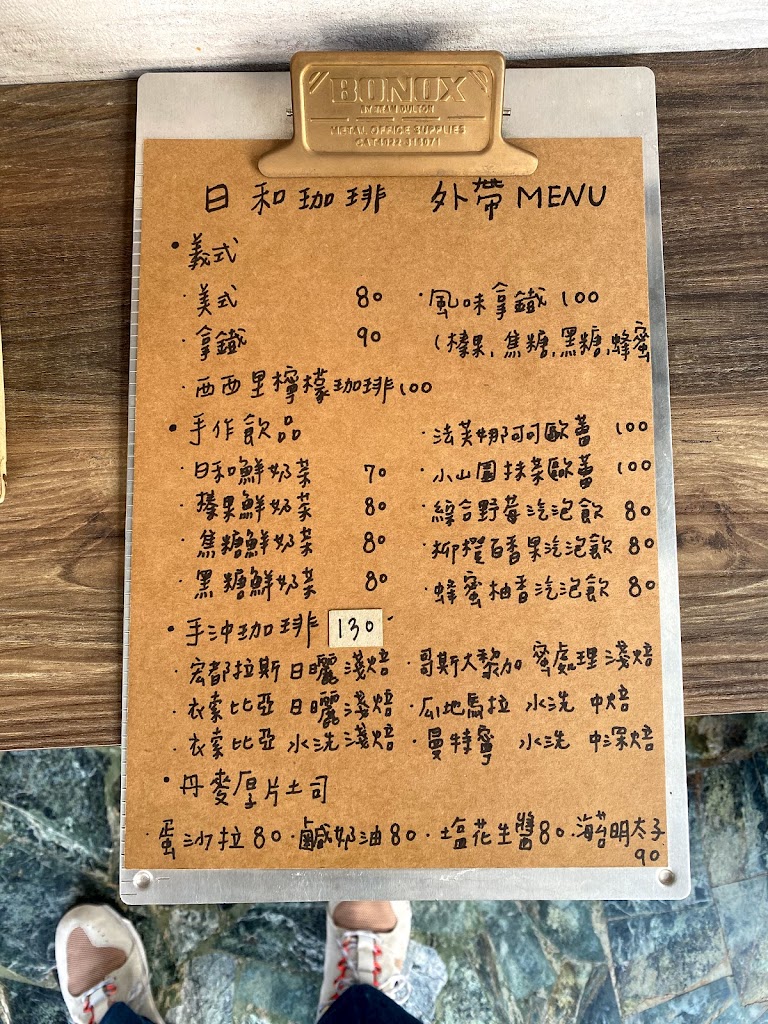 BONOX
METAL OFFICE SUPPLIES
日和珈琲 外帶 MENU
• 義式
· 美式 80 · 風味拿鐵 100
· 拿鐵 90 (榛果, 焦糖, 黑糖, 蜂蜜
· 西西里檸檬珈琲 100
• 手作飲品 · 法芙娜可可歐蕾 100
· 日和鮮奶茶 70 · 小山園抹茶歐蕾 100
· 榛果鮮奶茶 80 · 綜合野莓汽泡飲 80
· 焦糖鮮奶茶 80 · 柳橙百香果汽泡飲 80
· 黑糖鮮奶茶 80 · 蜂蜜柚香汽泡飲 80
• 手沖珈琲 130
· 宏都拉斯 日曬 淺焙 · 哥斯大黎加 蜜處理 淺焙
· 衣索比亞 日曬 淺焙 · 瓜地馬拉 水洗 中焙
· 衣索比亞 水洗 淺焙 · 曼特寧 水洗 中深焙
• 丹麥厚片土司
· 蛋沙拉 80 · 鹹奶油 80 · 塩花生醬 80 · 海苔明太子 90